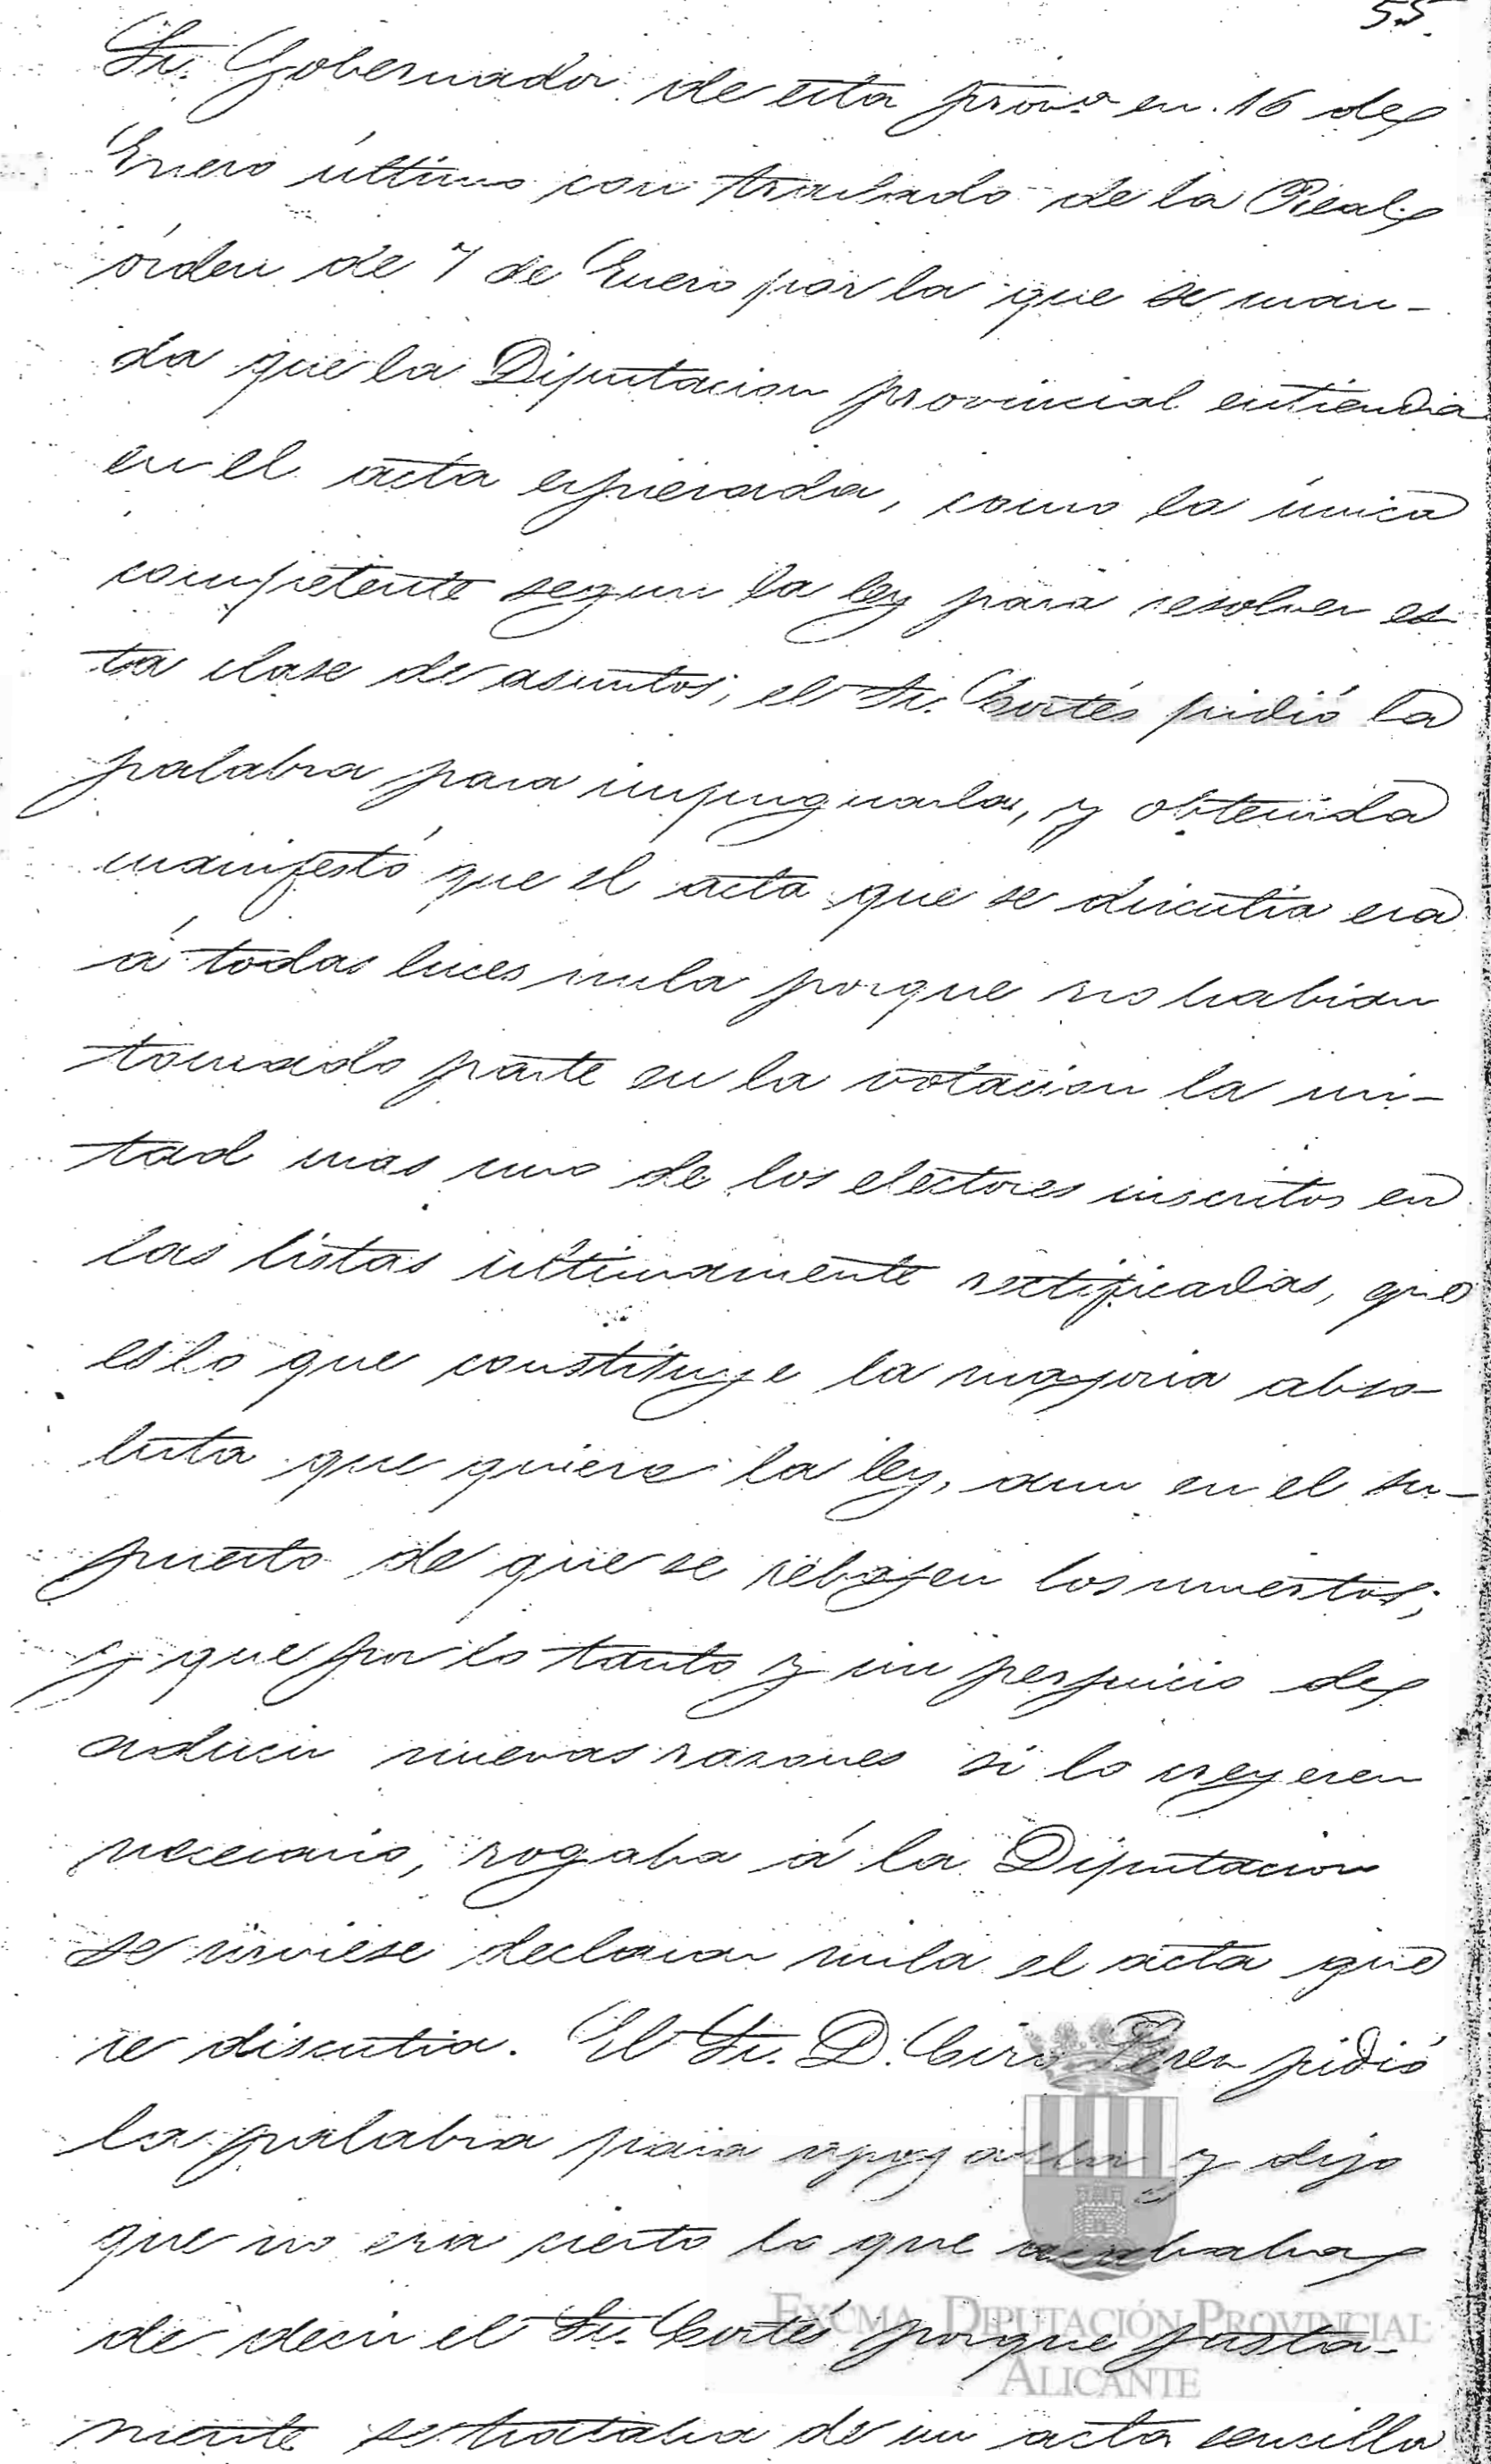 55.
Sr. Gobernador de esta prova en 16 de
Enero último con traslado de la Real
órden de 7 de Enero por la que se man-
da que la Diputacion provincial entienda
en el acta espresada, como la única
competente segun la ley para resolver es-
ta clase de asuntos; el Sr. Cortés pidió la
palabra para impugnarla, y obtenida
manifestó que el acta que se discutia era
á todas luces nula porque no habian
tomado parte en la votacion la mi-
tad mas uno de los electores inscritos en
las listas ultimamente rectificadas, que
es lo que constituye la mayoria abso-
luta que quiere la ley, aun en el su-
puesto de que se rebajen los muertos;
y que por lo tanto y sin perjuicio de
aducir nuevas razones si lo creyeren
necesario, rogaba á la Diputacion
se sirviese declarar nula el acta que
se discutia. El Sr. D. Ciro Perez pidió
la palabra para apoyarla y dijo
que no era cierto lo que acababa
de decir el Sr. Cortés porque justa-
mente se trataba de un acta sencilla
EXCMA. DIPUTACIÓN PROVINCIAL
ALICANTE